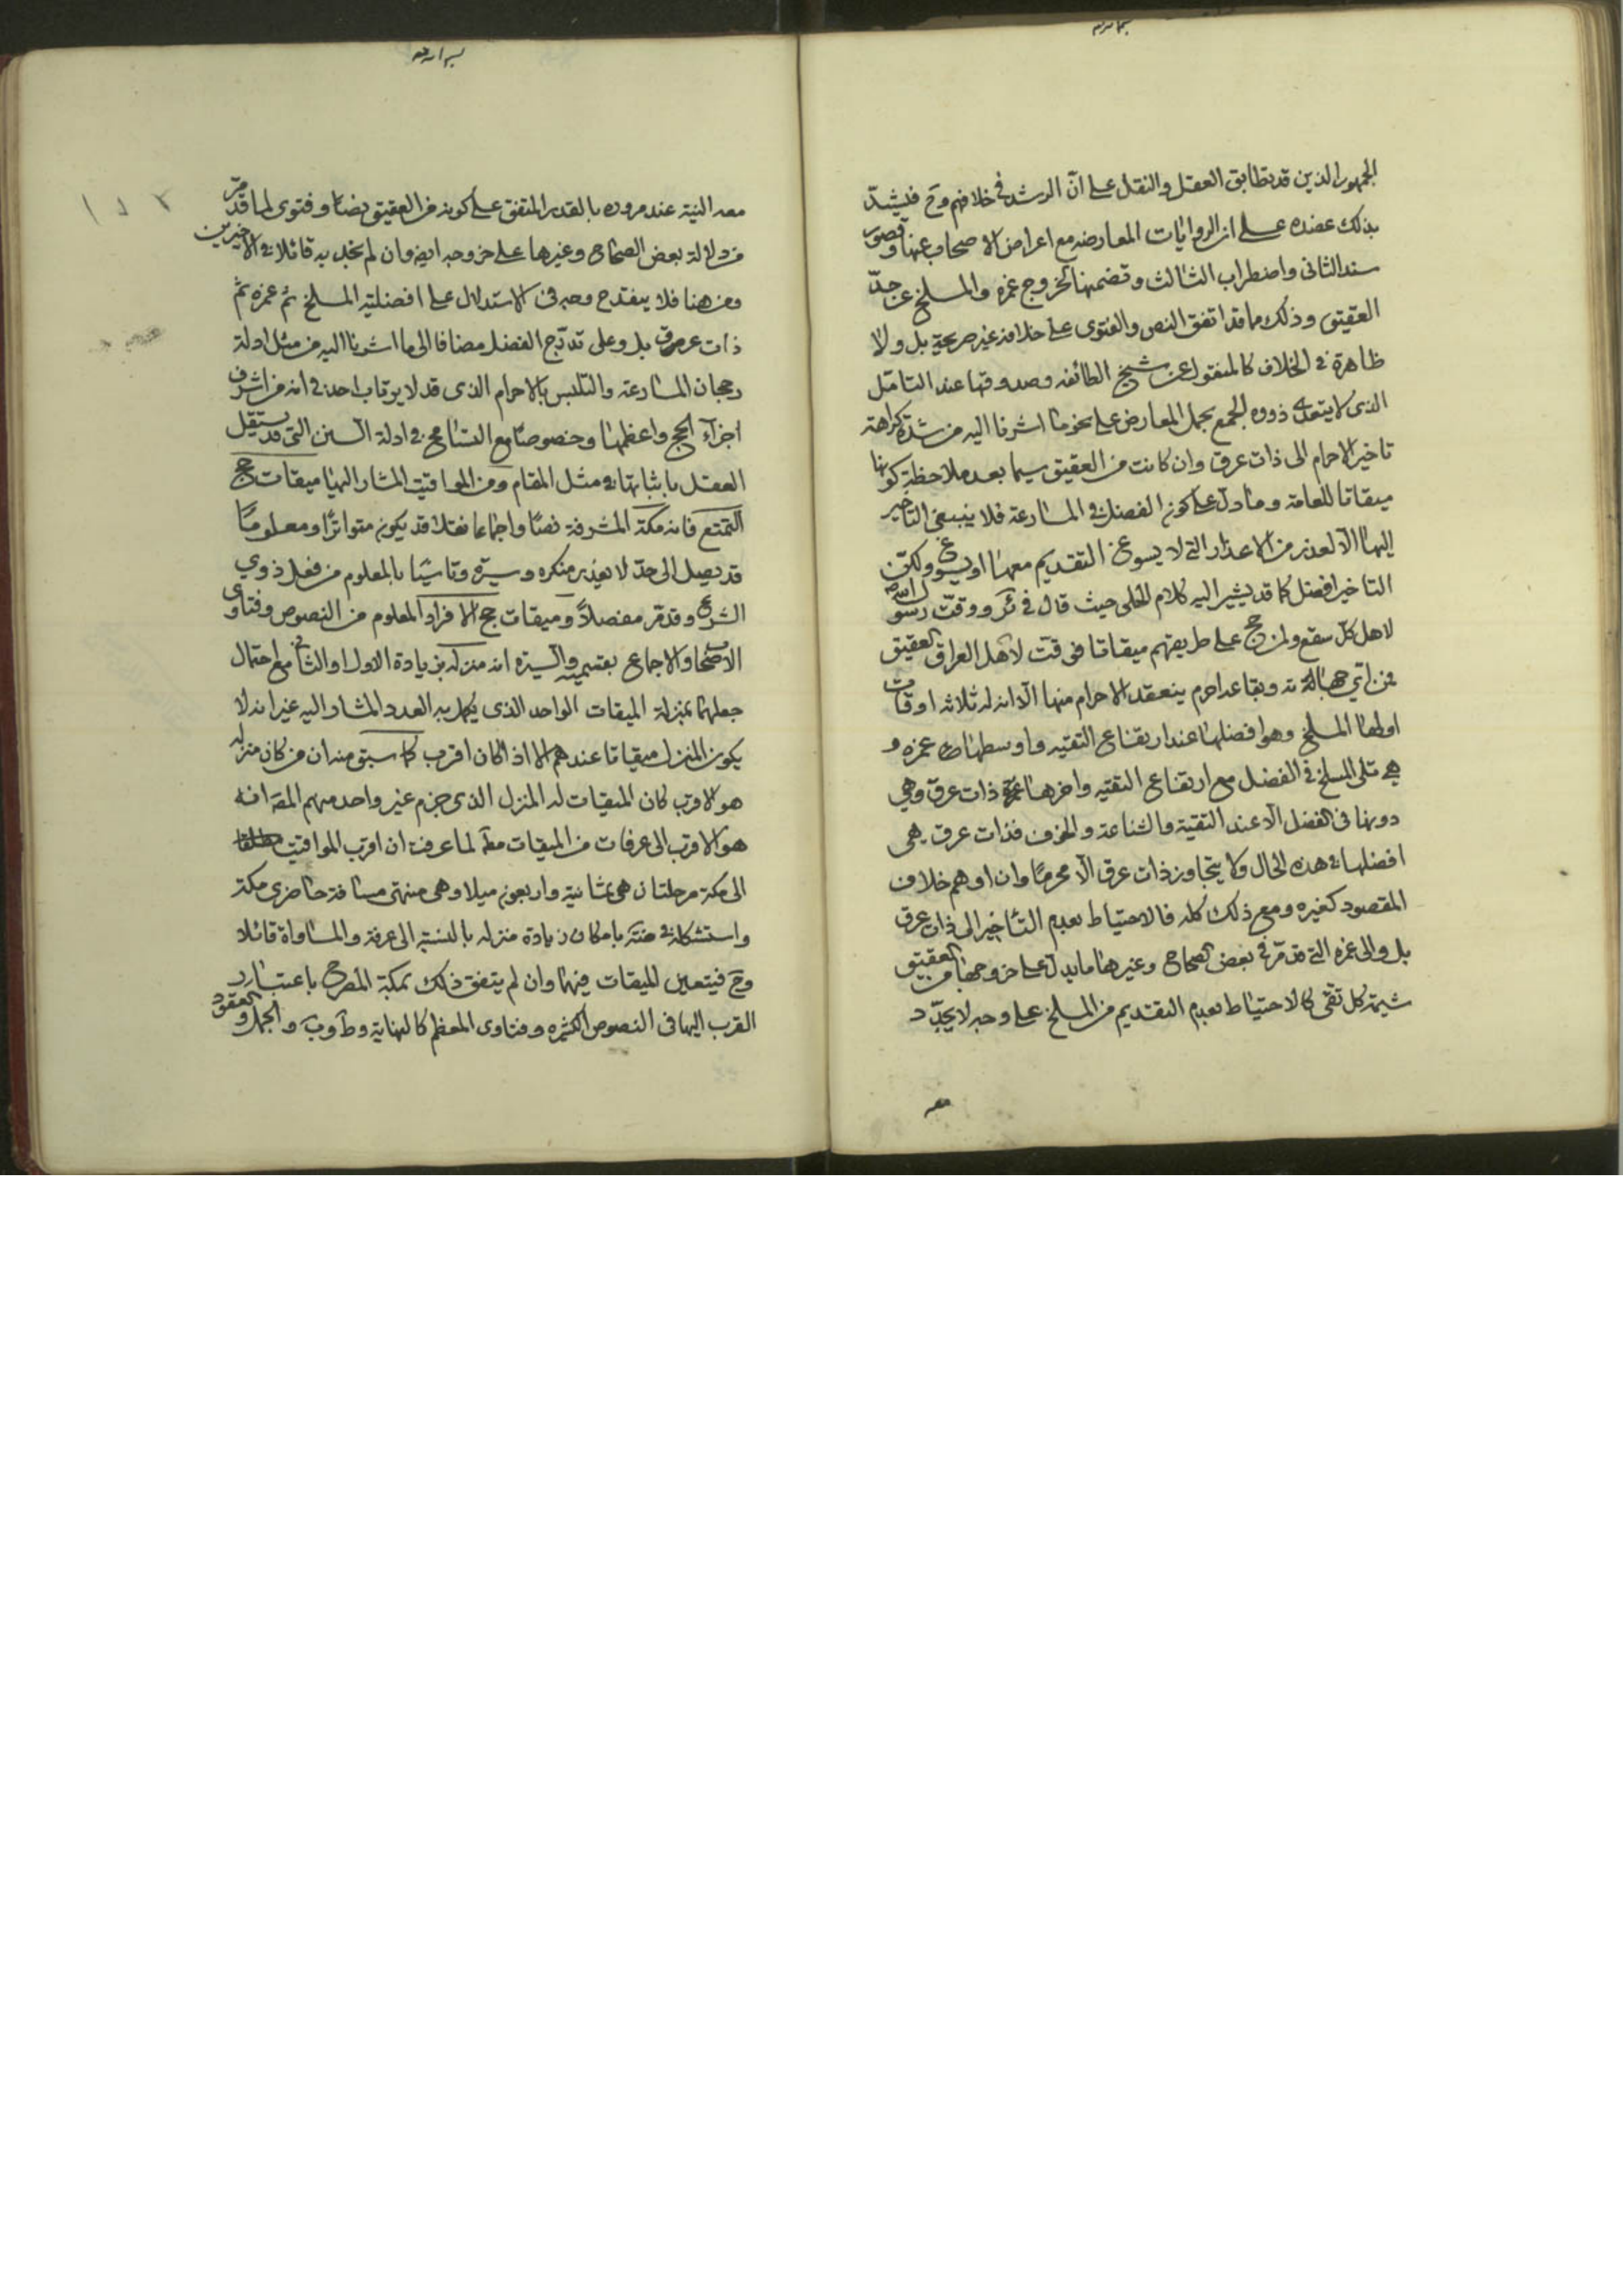 الجمهور الذين قد تطابق العقل والنقل على ان الرشد في خلافهم وح فليشد
بذلك عضده على ان الروايات المعارضه مع اعراض الاصحاب عنها وقصور
سند الثانى واضطراب الثالث وتضمنها لخروج غمره والمسلخ عن حد
العقيق وذلك مما قد اتفق النص والفتوى على خلافه غير صريحة بل ولا
ظاهرة في الخلاف كالمنقول عن شيخ الطائفه وصدوقها عند التامل
الذى لا يتعداه ذووه للجمع بحمل المعارض على نحو ما اشرنا اليه من شدة كراهة
تاخير الاحرام الى ذات عرق وان كانت من العقيق سيما بعد ملاحظة كونها
ميقاتا للعامة وما دل على كون الفضل في المسارعة فلا ينبغى التاخير
اليها الا لعذر من الاعذار التى لا يسوغ التقديم معها او يسوغ ولكن
التاخير افضل كما قد يشير اليه كلام الحلى حيث قال في ئر ووقت رسول الله ص
لاهل كل سقع ولمن حج على طريقهم ميقاتا فوقت لاهل العراق العقيق
فمن اي جهاته وبقاعه احرم ينعقد الاحرام منها الا ان له ثلاثه اوقات
اولها المسلخ وهو افضلها عند ارتفاع التقيه واوسطها غمره و
هي تلى المسلخ في الفضل مع ارتفاع التقيه واخرها ذات عرق وهي
دونها فى الفضل الا عند التقية والشناعة والخوف فذات عرق هى
افضلها في هذه الحال ولا يتجاوز ذات عرق الا محرما وان اوهم خلاف
المقصود كغيره ومع ذلك كله فالاحتياط بعدم التأخير الى ذات عرق
بل والى غمره التى قد مر في بعض الصحاح وغيرها ما يدل على خروجها من العقيق
شيمة كل تقى كالاحتياط بعدم التقديم من المسلخ على وجه لا يجدد
معه
معه النية عند مروره بالقدر المتفق على كونه من العقيق نصا وفتوى لما قد مر
من دلالة بعض الصحاح وغيرها على خروجه ايضه وان لم نجد به قائلا في الاخيرين
ومن هنا فلا ينقدح وجه فى الاستدلال على افضلية المسلخ ثم غمره ثم
ذات عرق بل وعلى تدرج الفضل مضافا الى ما اشرنا اليه من مثل ادلة
رجحان المسارعة والتلبس بالاحرام الذى قد لا يرتاب احد في انه من اشرف
اجزاء الحج واعظمها وخصوصا مع التسامح في ادلة السنن التى قد يستقل
العقل باثباتها في مثل المقام ومن المواقيت المشار اليها ميقات حج
التمتع فانه مكة المشرفة نصا واجماعا نقله قد يكون متواترا ومعلوما
قد يصل الى حد لا يعذر منكره وسيرة وتاسيا بالمعلوم من فعل ذوي
الشرع وقد مر مفصلا وميقات حج الافراد المعلوم من النصوص وفتاوى
الاصحاب والاجماع بقسميه والسيره انه منزله بزيادة الاول او الثانى مع احتمال
جعلهما بمنزلة الميقات الواحد الذى يكمل به العدد المشار اليه غير انه لا
يكون المنزل ميقاتا عندهم الا اذا كان اقرب كما سبق منه ان من كان منزله
هو الاقرب كان الميقات له المنزل الذى جزم غير واحد منهم المقه انه
هو الاقرب الى عرفات من الميقات معه لما عرفت ان اقرب المواقيت
الى مكة مرحلتان هى ثمانية واربعون ميلا وهى منتهى مسافة حاضرى مكة
واستشكله في ضنته بامكان زيادة منزله بالنسبة الى عرفة والمساواة قائلا
وح فيتعين الميقات فيهما وان لم يتفق ذلك بمكة المصرح باعتبار
القرب اليها فى النصوص الكثيره وفتاوى المعظم كالنهاية وط وب والجمل والعقود